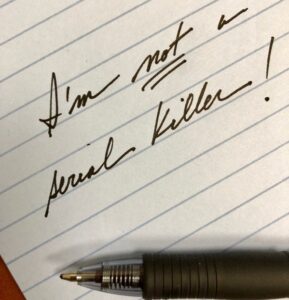 I'm not a
serial killer!